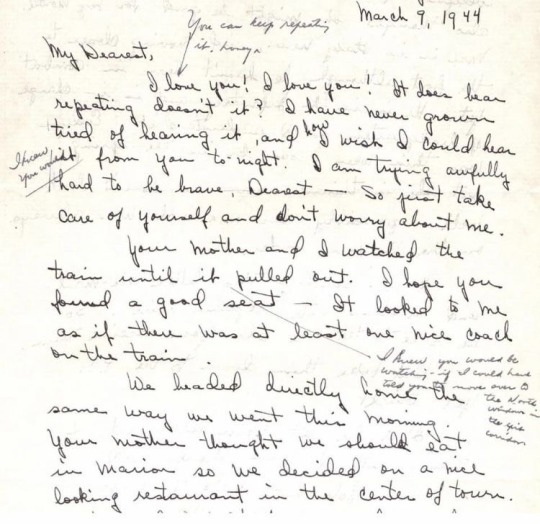 March 9, 1944
You can keep repeating
it, honey.
My Dearest,
I love you! I love you! It does bear
repeating doesn't it? I have never grown
tired of hearing it, and how I wish I could hear
it from you to-night. I am trying awfully
I knew
you would
hard to be brave, Dearest — So just take
care of yourself and don't worry about me.
Your mother and I watched the
train until it pulled out. I hope you
found a good seat — It looked to me
as if there was at least one nice coach
on the train.
I knew you would be
watching - if I could have
told you to move over to
the North
window in
the
We headed directly home the
same way we went this morning.
Your mother thought we should eat
in Marion so we decided on a nice
looking restaurant in the center of town.